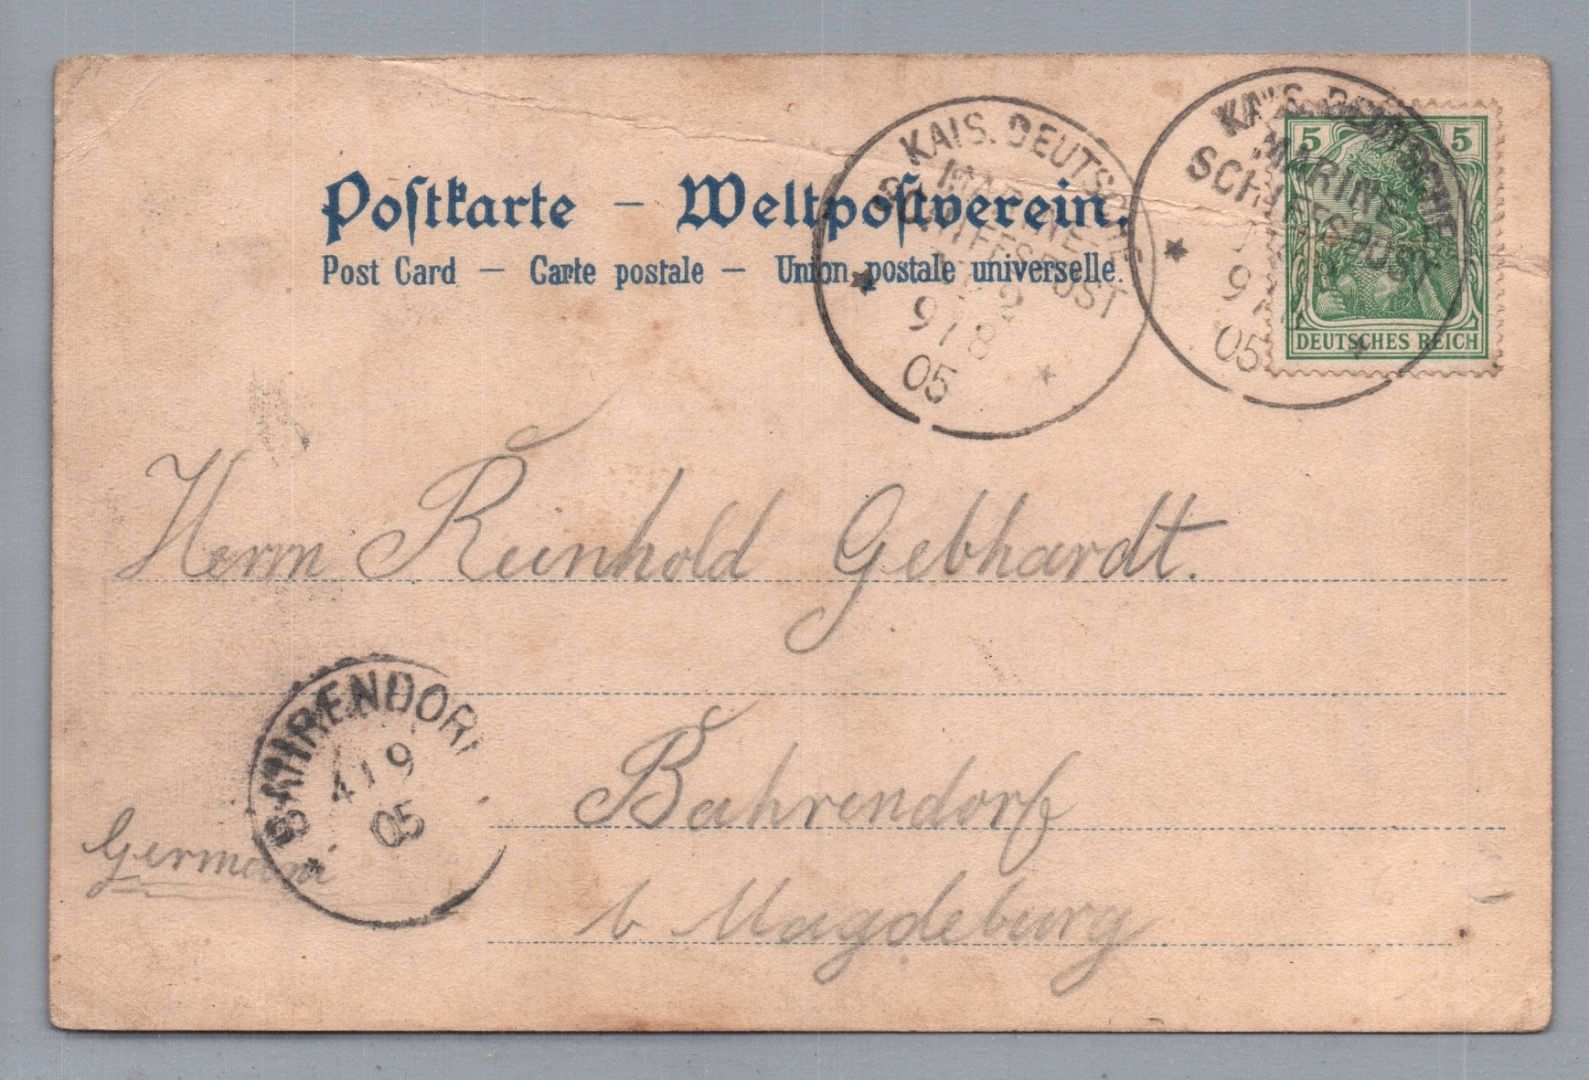 Postkarte – Weltpostverein.
Post Card – Carte postale – Union postale universelle.
KAIS. DEUTSCHE
MARINE-
SCHIFFSPOST
9/8
05
KAIS. DEUTSCHE
MARINE-
SCHIFFSPOST
9/
05
5 5
DEUTSCHES REICH
Herrn Reinhold Gebhardt.
BAHRENDORF
4/9
05
Bahrendorf
Germani
b Magdeburg